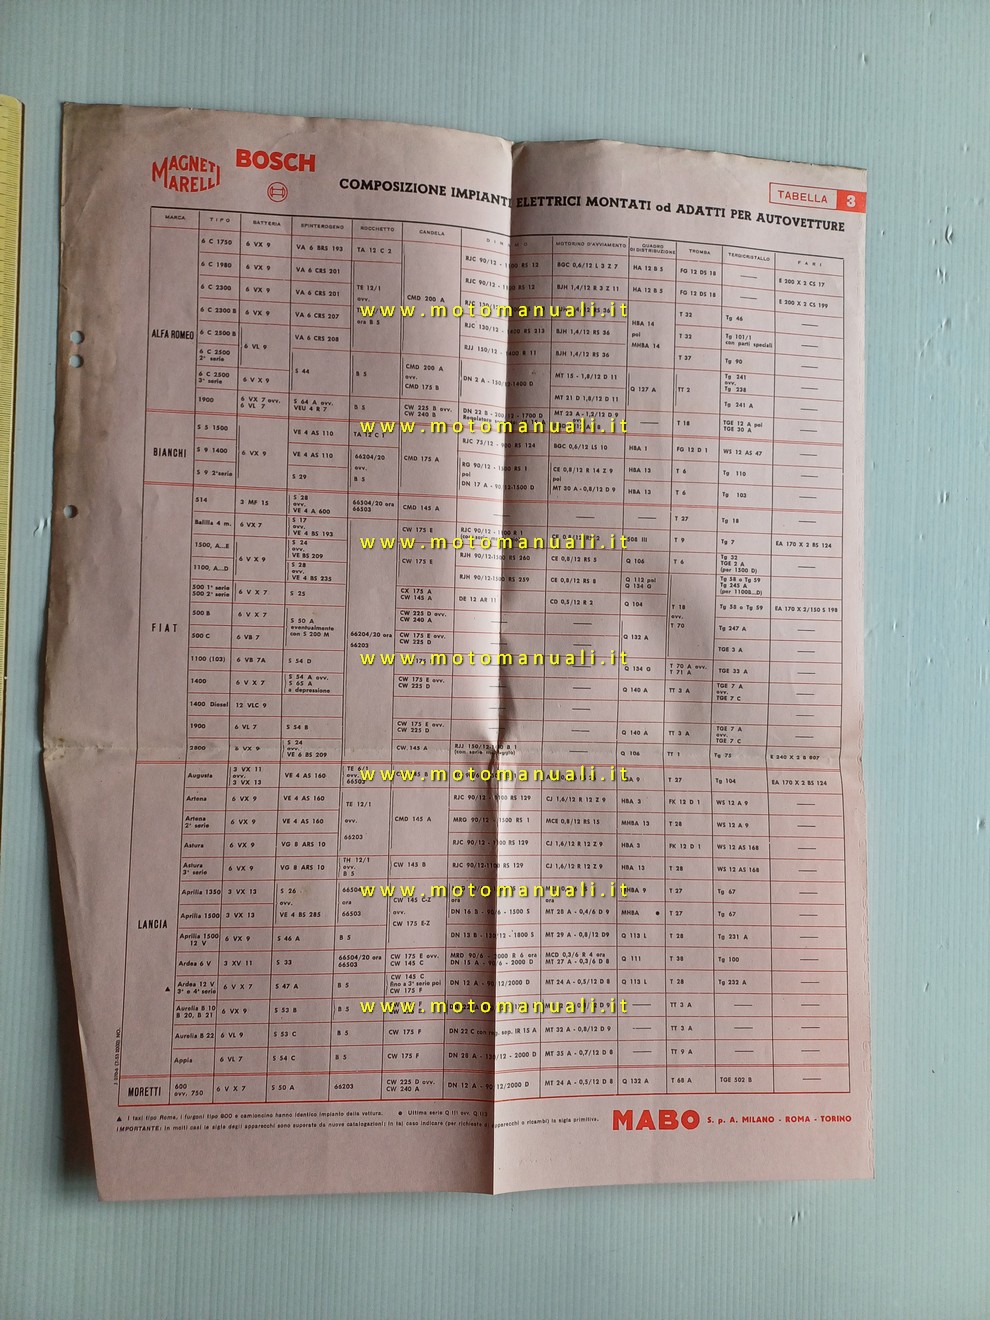 MAGNETI
MARELLI
BOSCH
COMPOSIZIONE IMPIANTI ELETTRICI MONTATI od ADATTI PER AUTOVETTURE
TABELLA 3
MARCA TIPO BATTERIA SPINTEROGENO ROCCHETTO CANDELA MOTORINO D'AVVIAMENTO QUADRO DI DISTRIBUZIONE TROMBA TERGICRISTALLO FARI
ALFA ROMEO
6 C 1750 6 VX 9 VA 6 BRS 193 TA 12 C 2 RJC 90/12 BGC 0,6/12 L 3 Z 7 HA 12 B 5 FG 12 DS 18 E 200 X 2 CS 17
6 C 1980 6 VX 9 VA 6 CRS 201 RJC 90/12 BJH 1,4/12 R 3 Z 11 HA 12 B 5 FG 12 DS 18 E 200 X 2 CS 199
6 C 2300 6 VX 9 VA 6 CRS 201 TE 12/1 ovv. CMD 200 A T 32 Tg 46
6 C 2300 B 6 VX 9 VA 6 CRS 207 ora B 5 BJH 1,4/12 RS 36 HBA 14 poi MHBA 14 T 33 Tg 101/1 con parti speciali
6 C 2500 B 6 VL 9 VA 6 CRS 208 RJJ 150/12 BJH 1,4/12 RS 36 T 37 Tg 90
6 C 2500 2ª serie
6 C 2500 3ª serie 6 V X 9 S 44 B 5 CMD 200 A ovv. CMD 175 B DN 2 A - 150/12-1400 D MT 15 - 1,8/12 D 11 Q 127 A TT 2 Tg 241 ovv. Tg 238
MT 21 D 1,8/12 D 11 Tg 241 A
1900 6 V X 7 ovv. 6 VL 7 S 64 A ovv. VEU 4 R 7 B 5 CW 225 B ovv. CW 240 B DN 22 B - 200/12 - 1700 D MT 22 A - 1,2/12 D 9 T 18 TGE 12 A poi TGE 30 A
BIANCHI
S 5 1500 VE 4 AS 110 TA 12 C 1 RJC 75/12 BGC 0,6/12 LS 10 HBA 1 FG 12 D 1 WS 12 AS 47
S 9 1400 6 VX 9 VE 4 AS 110 66204/20 ovv. B 5 CMD 175 A RG 90/12 poi CE 0,8/12 R 14 Z 9 poi HBA 13 T 6 Tg 110
S 9 2ªserie S 29 DN 17 A - 90/12-1500 D MT 20 A - 0,8/12 D 9 HBA 13 T 6 Tg 103
FIAT
514 3 MF 15 S 28 ovv. VE 4 A 600 66504/20 ora 66503 CMD 145 A — — — T 27 Tg 18
Balilla 4 m. 6 VX 7 S 17 ovv. VE 4 BS 193 CW 175 E RJC 90/12 T 9 Tg 7 EA 170 X 2 BS 124
1500, A...E 6 V X 9 S 24 ovv. VE 6 BS 209 CW 175 E RJH 90/12-1500 RS 260 CE 0,8/12 RS 5 Q 106 T 6 Tg 32 TGE 2 A (per 1500 D)
1100, A...D S 28 ovv. VE 4 BS 235 RJH 90/12-1500 RS 259 CE 0,8/12 RS 8 Q 112 poi Q 124 G Tg 58 o Tg 59 Tg 245 A (per 1100B...D)
500 1ª serie 500 2ª serie 6 V X 7 S 25 CX 175 A CW 145 A DE 12 AR 11 CD 0,5/12 R 2 Q 104 T 18 ovv. T 70 Tg 58 o Tg 59 EA 170 X 2/150 S 198
500 B 6 V X 7 S 50 A eventualmente con S 200 M CW 225 D ovv. CW 240 A — Q 132 A Tg 247 A
500 C 6 VB 7 66204/20 ora 66203 CW 175 E ovv. CW 225 D — — TGE 3 A
1100 (103) 6 VB 7A S 54 D Q 154 G T 70 A ovv. T 71 A TGE 33 A
1400 6 V X 7 S 54 A ovv. S 65 A a depressione CW 175 E ovv. CW 225 D — — Q 140 A TT 3 A TGE 7 A ovv. TGE 7 C
1400 Diesel 12 VLC 9 — — —
1900 6 VL 7 S 54 B CW 175 E ovv. CW 225 D — — Q 140 A TT 3 A TGE 7 A ovv. TGE 7 C
2800 6 VX 9 S 24 ovv. VE 6 BS 209 CW. 145 A RJJ 150/12 — Q 106 TT 1 Tg 75 E 240 X 2 B 807
LANCIA
Augusta 3 VX 11 ovv. 3 VX 13 VE 4 AS 160 TE 6/1 ovv. 66503 T 27 Tg 104 EA 170 X 2 BS 124
Artena 6 VX 9 VE 4 AS 160 TE 12/1 ovv. 66203 CMD 145 A RJC 90/12 - 1100 RS 129 CJ 1,6/12 R 12 Z 9 HBA 3 FK 12 D 1 WS 12 A 9 —
Artena 2ª serie 6 VX 9 VE 4 AS 160 MRG 90/12 - 1500 RS 1 MCE 0,8/12 RS 15 MHBA 13 T 28 WS 12 A 9 —
Astura 6 VX 9 VG 8 ARS 10 RJC 90/12 - 1100 RS 129 CJ 1,6/12 R 12 Z 9 HBA 3 FK 12 D 1 WS 12 AS 168 —
Astura 3ª serie 6 VX 9 VG 8 ARS 10 TH 12/1 ovv. B 5 CW 145 B RJC 90/12-1100 RS 129 CJ 1,6/12 R 12 Z 9 HBA 13 T 28 WS 12 AS 168 —
Aprilia 1350 3 VX 13 S 26 ovv. 66504 ora CW 145 C-Z ora ora MHBA 9 T 27 Tg 67 —
Aprilia 1500 3 VX 13 VE 4 BS 285 66503 ovv. CW 175 E-Z DN 16 B - 90/6 - 1500 S MT 28 A - 0,4/6 D 9 MHBA ● T 27 Tg 67 —
Aprilia 1500 12 V 6 VX 9 S 46 A B 5 DN 13 B - 130/12 - 1800 S MT 29 A - 0,6/12 D9 Q 113 L T 28 Tg 231 A —
Ardea 6 V 3 XV 11 S 33 66504/20 ora 66503 CW 175 E ovv. CW 145 C MRD 90/6 - 2000 R 6 ora DN 15 A - 90/6 - 2000 D MCD 0,3/6 R 4 ora MT 27 A - 0,3/6 D 8 Q 111 T 38 Tg 100 —
▲ Ardea 12 V 3ª e 4ª serie 6 V X 7 S 47 A B 5 CW 145 C fino a 3ª serie poi CW 175 F DN 12 A - 90/12/2000 D MT 24 A - 0,5/12 D 8 Q 113 L T 28 Tg 232 A —
Aurelia B 10 B 20, B 21 6 VX 9 S 53 B B 5 — TT 3 A — —
Aurelia B 22 6 VL 9 S 53 C B 5 CW 175 F DN 22 C con reg. sep. IR 15 A MT 32 A - 0,8/12 D 9 — TT 3 A — —
Appia 6 VL 7 S 54 C B 5 CW 175 F DN 28 A - 130/12 - 2000 D MT 35 A - 0,7/12 D 8 — TT 9 A — —
MORETTI
600 ovv. 750 6 V X 7 S 50 A 66203 CW 225 D ovv. CW 240 A DN 12 A - 90/12/2000 D MT 24 A - 0,5/12 D 8 Q 132 A T 68 A TGE 502 B —
▲ I taxi tipo Roma, i furgoni tipo 800 e camioncino hanno identico impianto della vettura. ● Ultima serie Q 111 ovv. Q 113
IMPORTANTE: In molti casi le sigle degli apparecchi sono superate da nuove catalogazioni; in tal caso indicare (per richieste di apparecchi o ricambi) le sigle primitive.
MABO S. p. A. MILANO - ROMA - TORINO
www.motomanuali.it
www.motomanuali.it
www.motomanuali.it
www.motomanuali.it
www.motomanuali.it
www.motomanuali.it
www.motomanuali.it